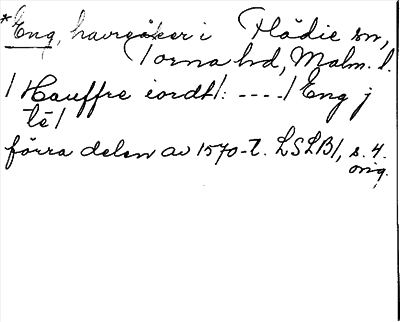 *Eng, havreåker i Flädie sn,
Torna hd, Malm. l.
/Hauffre iordt/: ----/Eng j
té/
förra delen av 1570-t. LSLB1, s. 4.
orig.